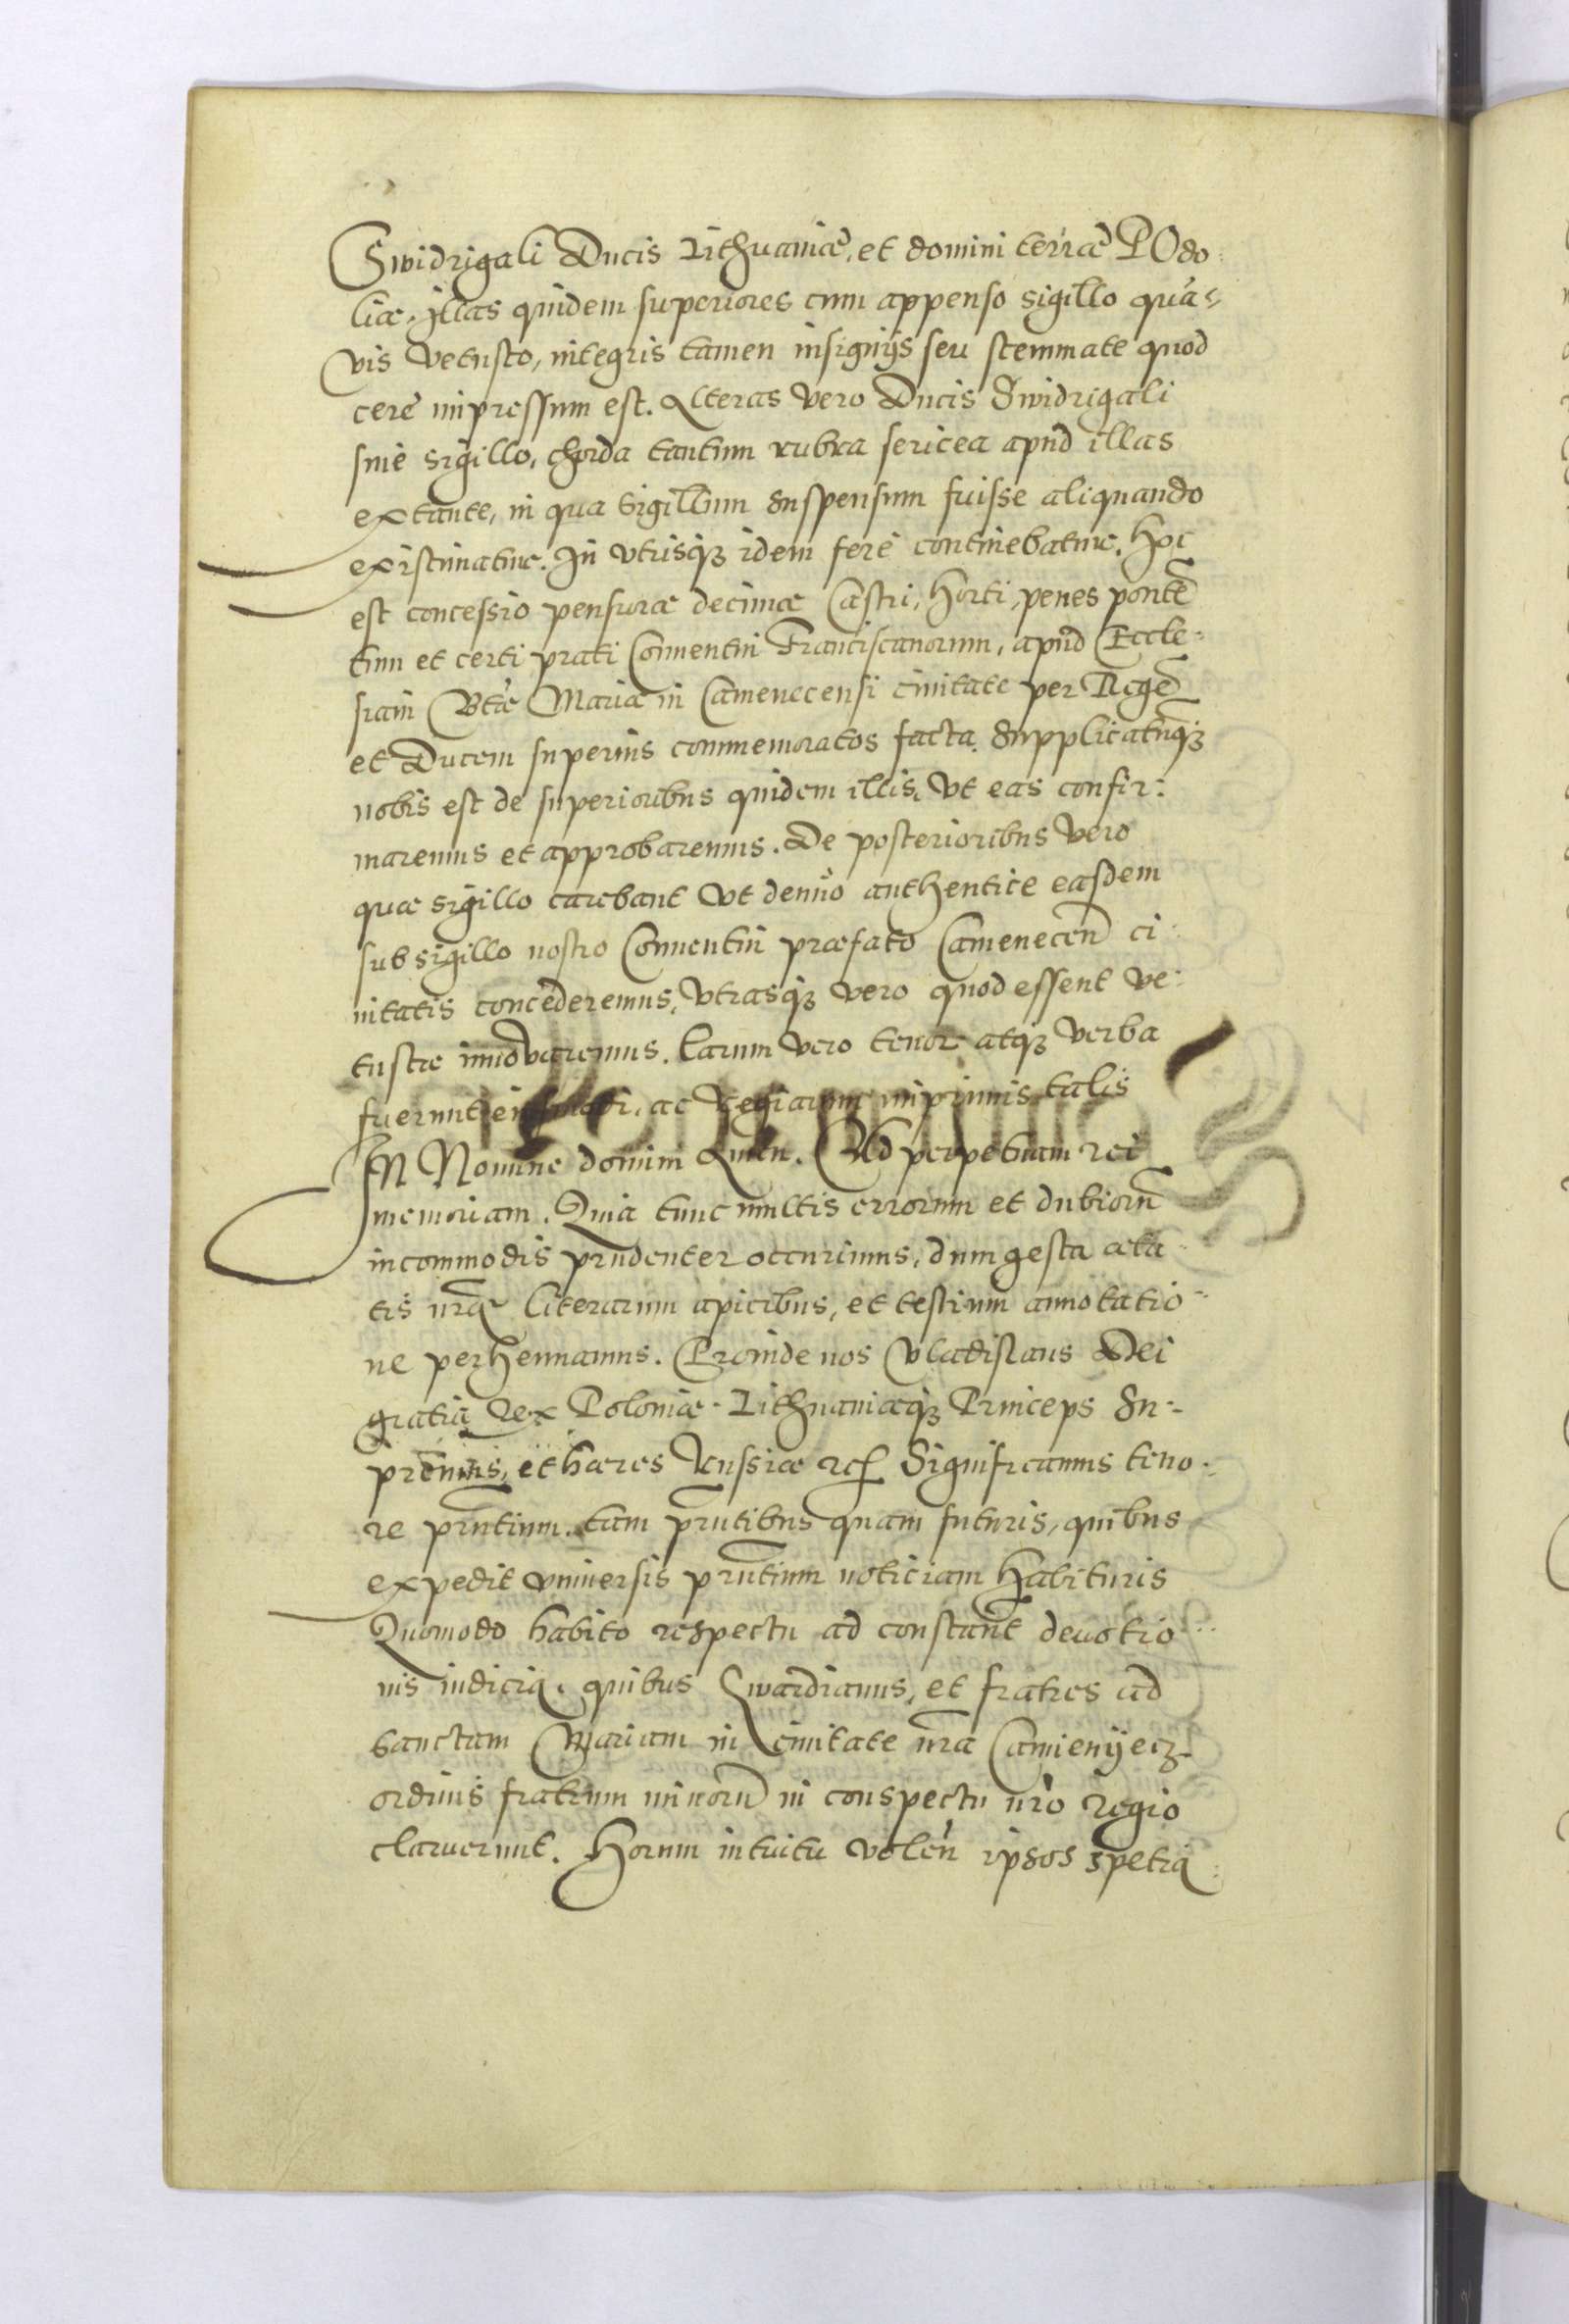 Swidrigali Ducis Lithuaniæ, et domini terræ POdo-
liæ. Illas quidem superiores cum appenso sigillo qua-
vis vetusto, integris tamen insignijs seu stemmate quod
ceré impressum est. Alteras vero Ducis Swidrigali
sine sigillo, chorda tantum rubra sericea apud illas
extante, in qua sigillum suspensum fuisse aliquando
existimatur. In vtrisq3 idem feré continebatur. Hoc
est concessio pensuræ decimæ Castri, Horti, penes ponte
tum et certi prati Conuentui Franciscanorum, apud Eccle-
siam Btæ Mariæ in Camenecensi ciuitate per Rege
et Ducem superius commemoratos facta. Supplicatuq3
nobis est de superioribus quidem illis, vt eas confir-
maremus et approbaremus. De posterioribus vero
quæ sigillo carebant vt denuo authentice easdem
sub sigillo nostro Conuentui præfato Camenecen ci-
uitatis concederemus, vtrasq3 vero quod essent ve-
tustæ innouaremus. Earum vero tenor atq3 verba
fuerunt eiusmodi, ac Regiarum inprimis talis
IN Nomine domini Amen. Ad perpetuam rei
memoriam. Quia tunc multis errorum et dubioru
incommodis prudenter occurimus, dum gesta æta-
tis nræ literarum apicibus, et testium annotatio-
ne perhennamus. Proinde nos Vladislaus Dei
gratia Rex Poloniæ. Lithuaniæq3 Princeps Su-
premus, et hæres Russiæ etc. Significamus teno-
re prntium. tam prntibus quam futuris, quibus
expedit vniuersis prntium noticiam habituris
Quomodo habito respectu ad constant deuotio-
nis indicia. quibus Gwardianus, et fratres ad
Sanctam Mariam in ciuitate nra Camienyecz
ordinis fratrum minoru in conspectu nro regio
claruerunt. Horum intuitu volen ipsos spetia-